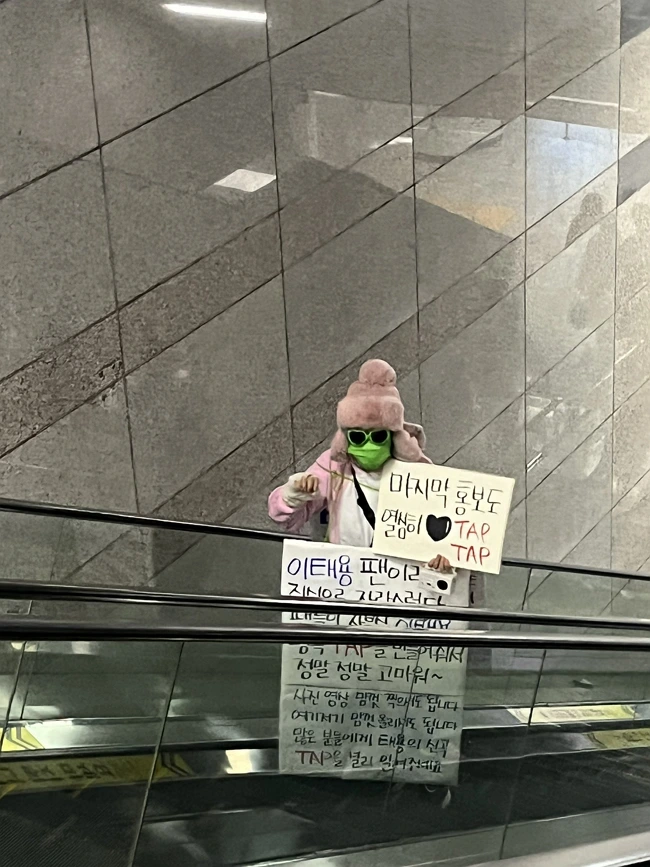 마지막 홍보도
열심히 ♥ TAP
TAP
이태용 팬이라
진심으로 자랑스럽다
TAP을 만들어줘서
정말 정말 고마워~
사진 영상 맘껏 찍으셔도 됩니다
여기저기 맘껏 올리셔도 됩니다
많은 분들에게 태용의 신곡
TAP을 널리 알려주세요